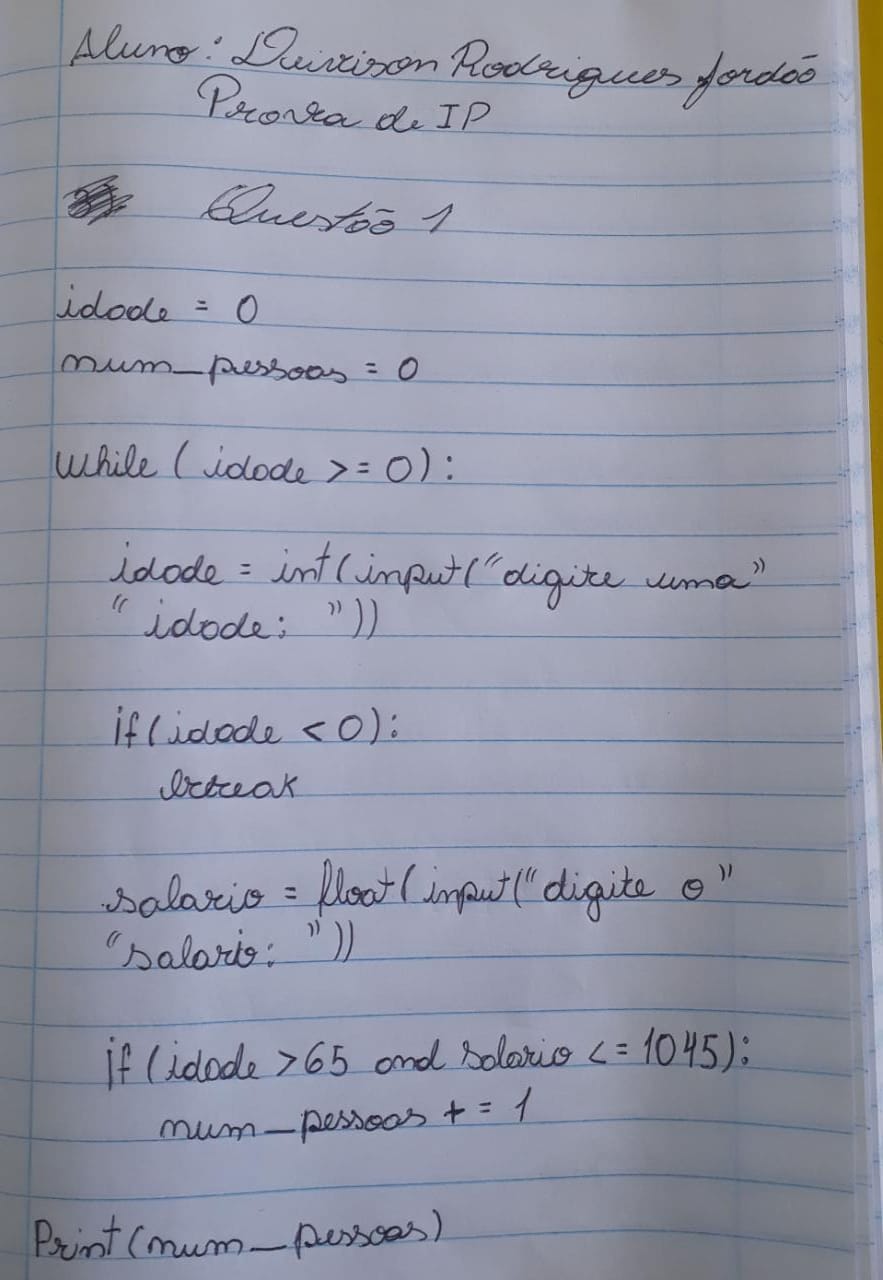 Aluno: Deivison Rodrigues Jordão
Prova de IP
Questão 1
idade = 0
num_pessoas = 0
while (idade >= 0):
idade = int(input("digite uma"
"idade: "))
if(idade < 0):
break
salario = float(input("digite o"
"salario: "))
if(idade >65 and salario <= 1045):
num_pessoas += 1
Print(num_pessoas)